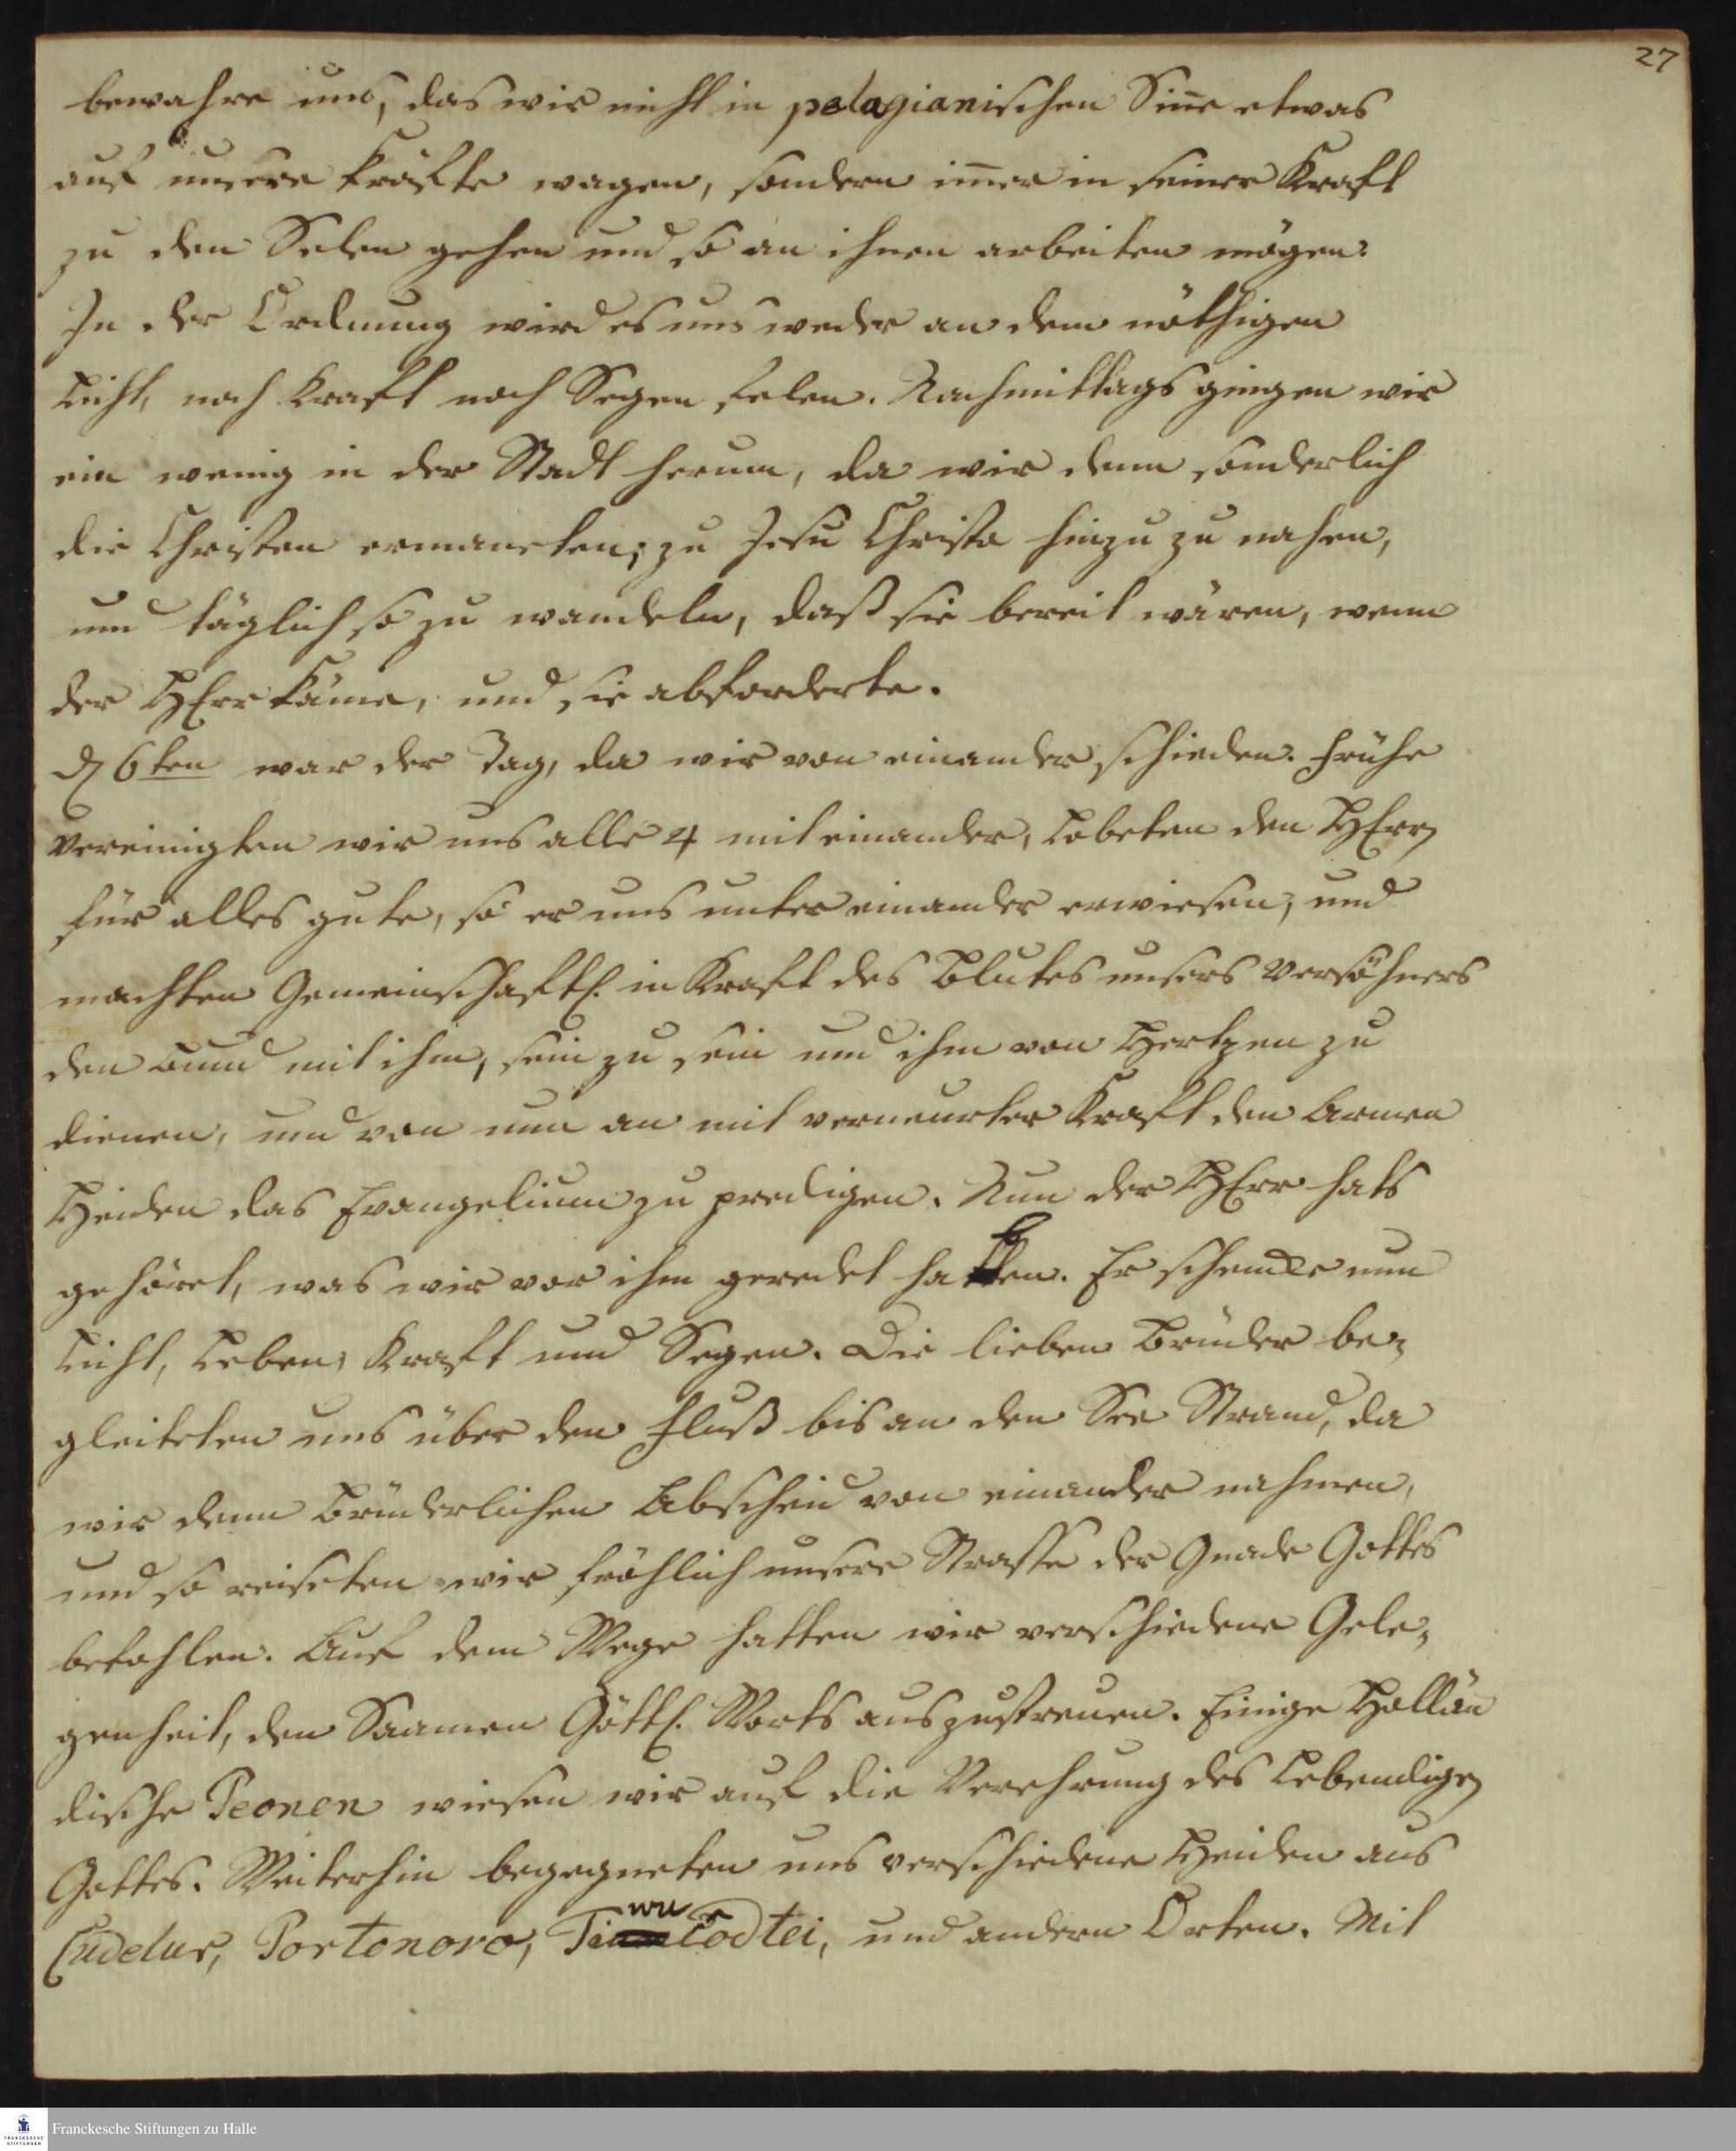 27
bewahre uns, das wir nicht in pelagianischen Sin̄e etwas
auf unsere Kräfte wagen, sondern im̄er in seiner Kraft
zu den Selen gehen und so an ihnen arbeiten mögen.
In der Ordnung wird es uns weder an dem nöthigen
Licht, noch Kraft noch Segen felen. Nachmittags gingen wir
ein wenig in der Stadt herum, da wir denn sonderlich
die Christen ermaneten, zu Jesu Christo hinzu zu nahen,
und täglich so zu wandeln, daß sie bereit wären, wenn
der HErr käme, und sie abforderte.
d 6ten war der Tag, da wir von einander schieden. Frühe
vereinigten wir uns alle 4 mit einander, Lobeten den HErrn
für alles gute, so er uns unter einander erwiesen, und
machten Gemeinschaftl. in Kraft des Blutes unsers Versöhners
den Bund mit ihm, sein zu sein und ihm von Hertzen zu
dienen, und von nun an mit verneurter Kraft den Armen
Heiden das Evangelium zu predigen. Nun der HErr hats
gehöret, was wir vor ihm geredet haben. Er schencke nun
Licht, Leben, Kraft und Segen. Die lieben Brüder be-
gleiteten uns über den Fluß bis an den See Strand, da
wir denn Brüderlichen Abscheid von einander nahmen,
und so reiseten wir fröhlich unsere Strasse der Gnade Gottes
befohlen. Auf dem Wege hatten wir verschiedene Gele-
genheit, den Saamen Göttl. Worts auszustreuen. Einige Hollän
dische Peonen wiesen wir auf die Verehrung des Lebendigen
Gottes. Weiterhin begegneten uns verschiedene Heiden aus
Cudelur, Portonovo, und andern Orten. Mit
Franckesche Stiftungen zu Halle
FRANCKESCHE
STIFTUNGEN